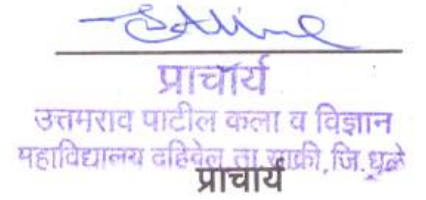 प्राचार्य
उत्तमराव पाटील कला व विज्ञान
महाविद्यालय दहिवेल ता साक्री, जि. धुळे
प्राचार्य